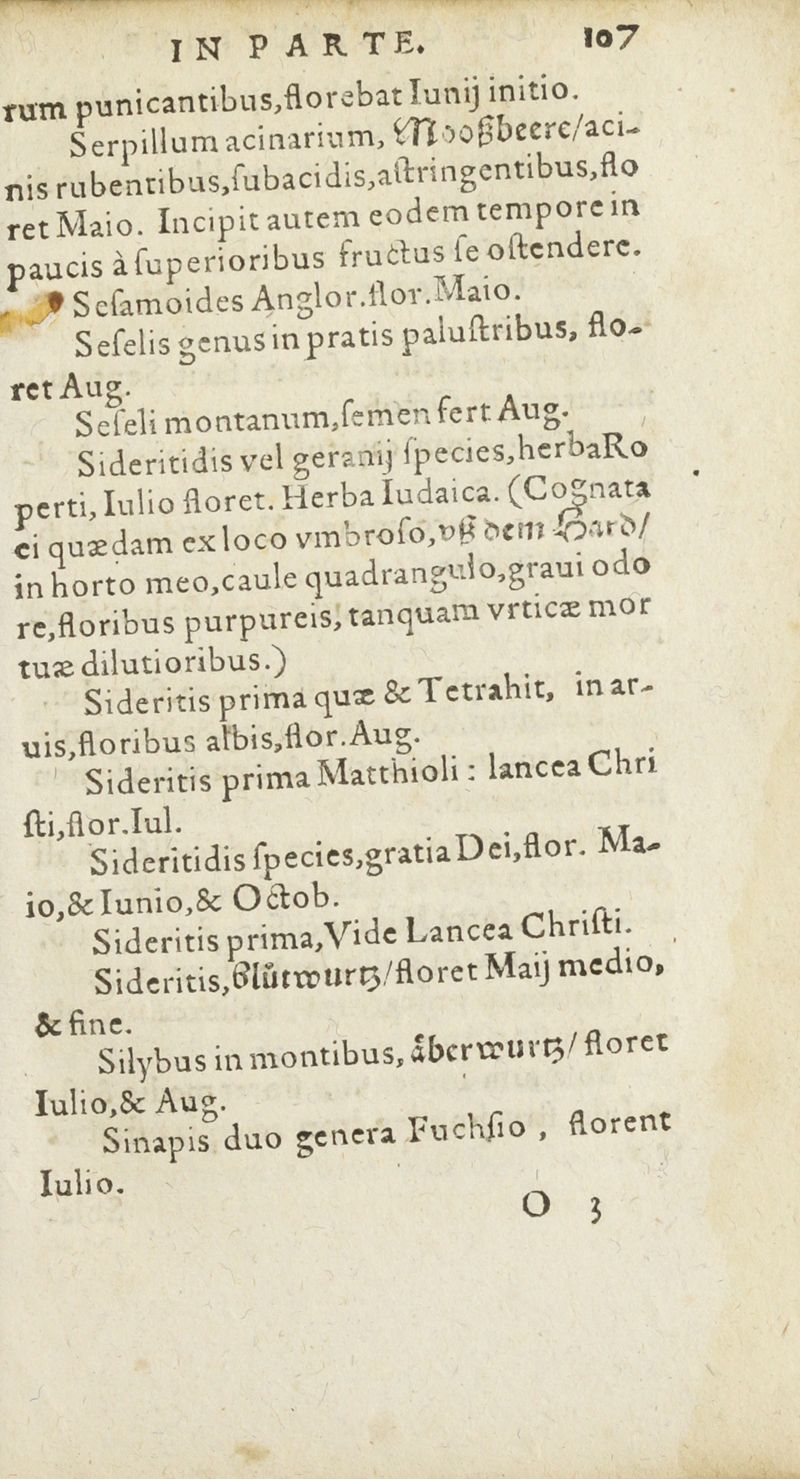 IN PARTE. 107
rum punicantibus,florebat Iunij initio.
Serpillum acinarium, Mooßbeere/aci-
nis rubentibus,ſubacidis,aſtringentibus,flo
ret Maio. Incipit autem eodem tempore in
paucis à ſuperioribus fructus ſe oſtendere.
Seſamoides Anglor.flor.Maio.
Seſelis genus in pratis paluſtribus, flo-
ret Aug.
Seſeli montanum,ſemen fert Aug.
Sideritidis vel geranij ſpecies,herbaRo
perti, Iulio floret. Herba Iudaica. (Cognata
ei quædam ex loco vmbroſo,vß dem Hard/
in horto meo,caule quadrangulo,graui odo
re,floribus purpureis, tanquam vrticæ mor
tuæ dilutioribus.)
Sideritis prima quæ & Tetrahit, in ar-
uis,floribus albis,flor.Aug.
Sideritis prima Matthioli : lancea Chri
ſti,flor.Iul.
Sideritidis ſpecies,gratia Dei,flor. Ma-
io,& Iunio,& Octob.
Sideritis prima,Vide Lancea Chriſti.
Sideritis,Glůtwurtz/floret Maij medio,
& fine.
Silybus in montibus, åberwurtz/ floret
Iulio,& Aug.
Sinapis duo genera Fuchſio , florent
Iulio.
O 3